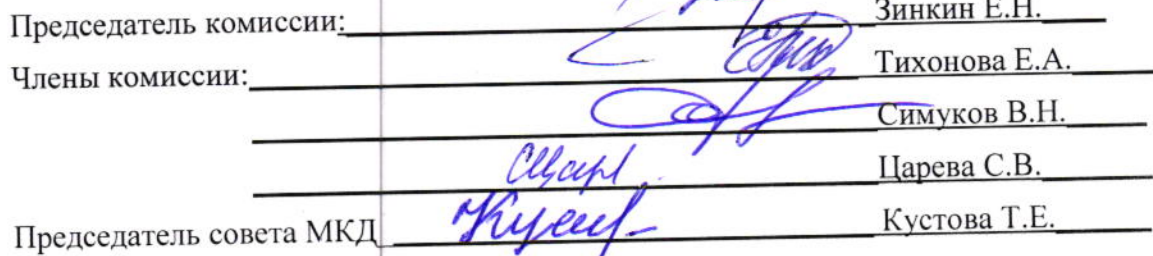 Председатель комиссии: Зинкин Е.Н.
Члены комиссии: Тихонова Е.А.
Симуков В.Н.
Царева С.В.
Председатель совета МКД Кустова Т.Е.